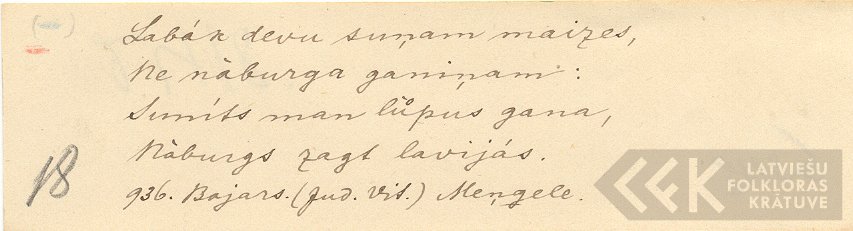 (—)
Labák devu suņam maizes,
Ne nàburga ganiņam:
Sunìts man lůpus gana,
Nàburgs zagt lavijás.
18
936. Bajars. (Jud. Vit.) Meņgele.
LFK
LATVIEŠU
FOLKLORAS
KRĀTUVE